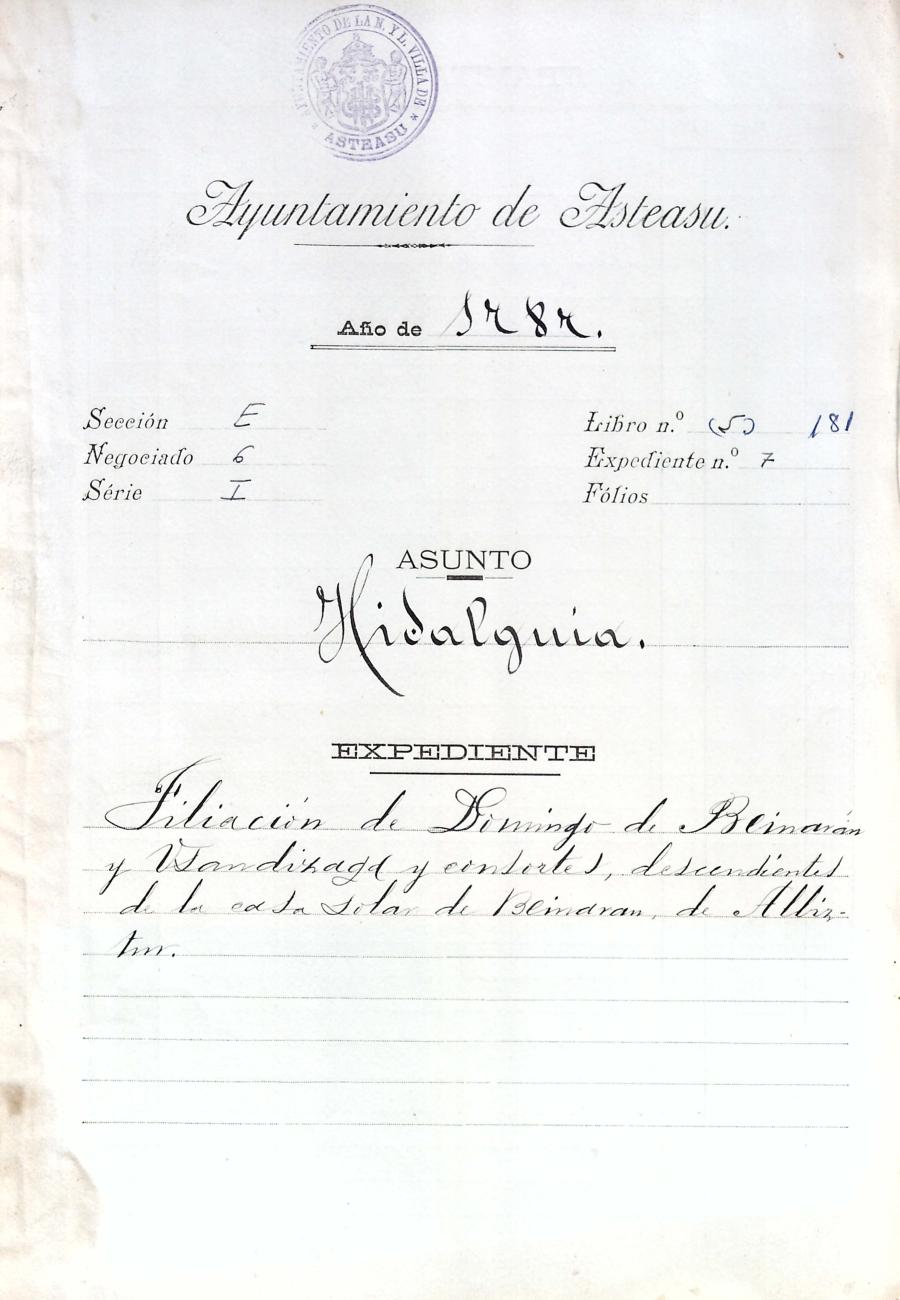 AYUNTAMIENTO DE LA N. Y L. VILLA DE * ASTEASU *
Ayuntamiento de Asteasu.
Año de 1787.
Sección E
Libro n.º (5) 181
Negociado 6
Expediente n.º 7
Série I
Fólios
ASUNTO
Hidalguia.
EXPEDIENTE
Filiación de Domingo de Beinarán
y Usandizaga y consortes, descendientes
de la casa solar de Beinaran, de Albiz-
tur.